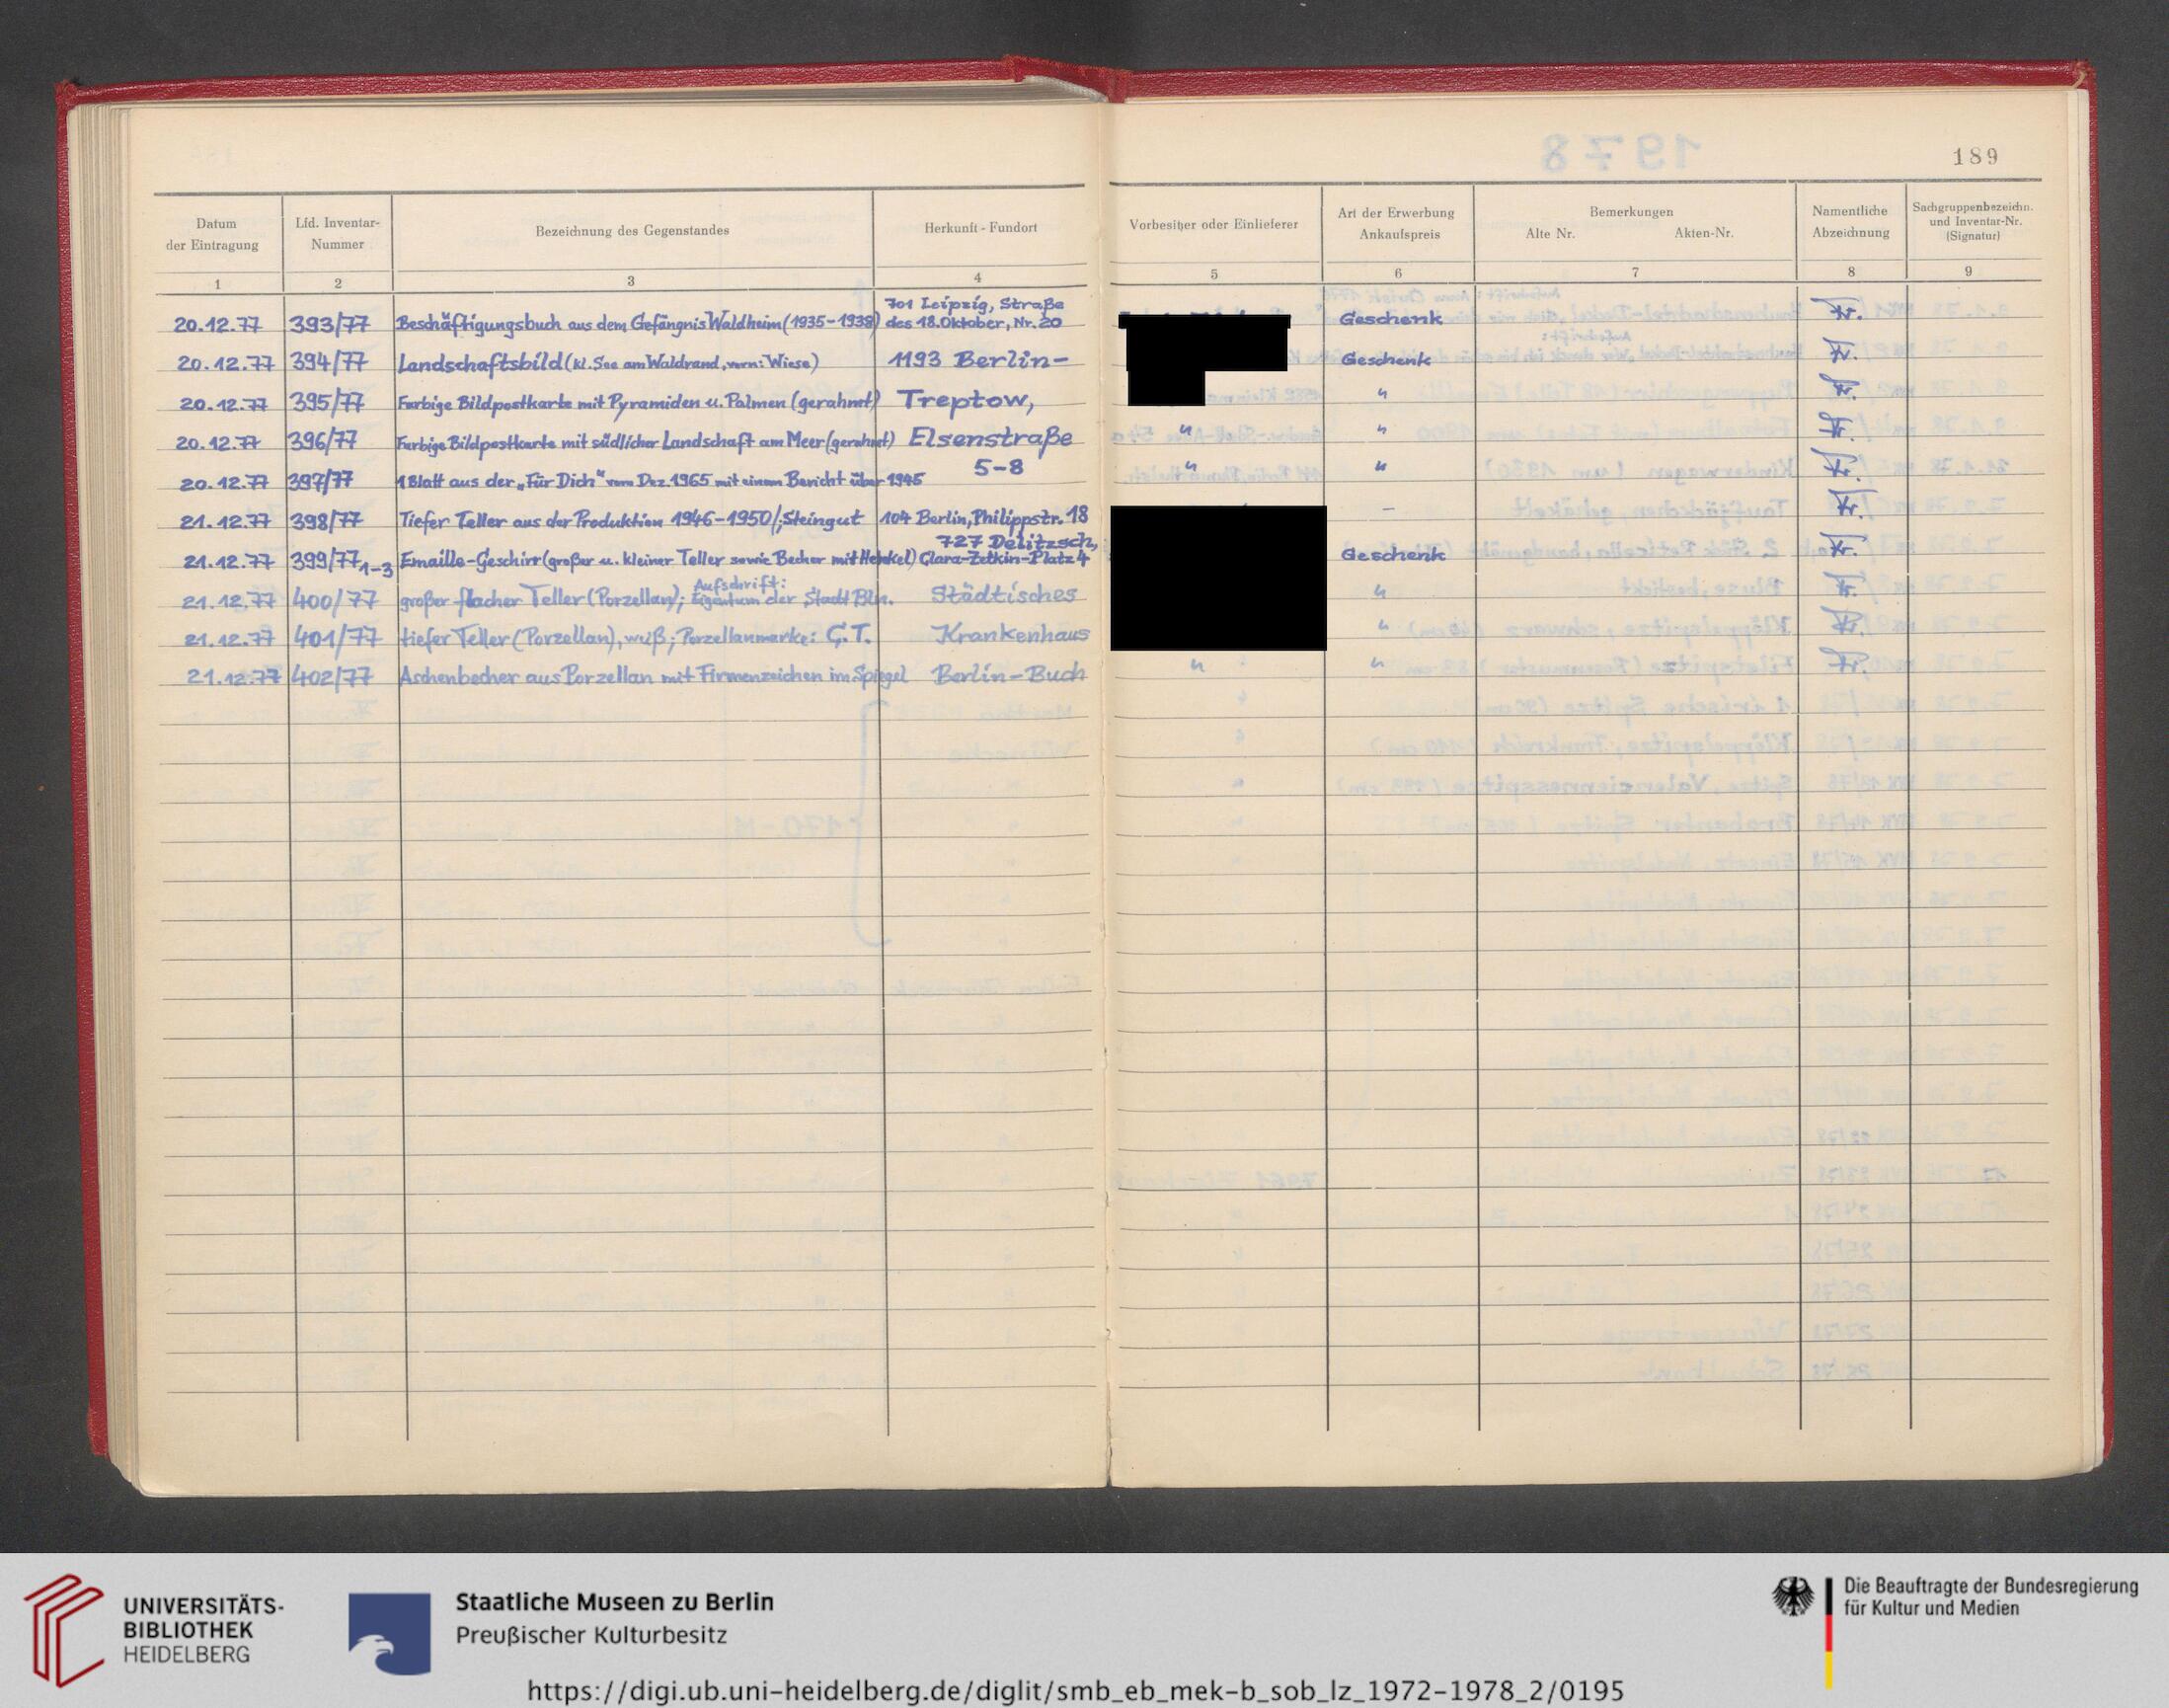 189
Datum der Eintragung
Lfd. Inventar-Nummer
Bezeichnung des Gegenstandes
Herkunft - Fundort
Vorbesitzer oder Einlieferer
Art der Erwerbung Ankaufspreis
Bemerkungen
Alte Nr. Akten-Nr.
Namentliche Abzeichnung
Sachgruppenbezeichn. und Inventar-Nr. (Signatur)
1 2 3 4 5 6 7 8 9
701 Leipzig, Straße
20.12.77 393/77 Beschäftigungsbuch aus dem Gefängnis Waldheim (1935-1938) des 18.Oktober, Nr. 20 Geschenk Kr.
20.12.77 394/77 Landschaftsbild (kl. See am Waldrand, vorn: Wiese) 1193 Berlin- Geschenk Kr.
20.12.77 395/77 Farbige Bildpostkarte mit Pyramiden u. Palmen (gerahmt) Treptow, " Kr.
20.12.77 396/77 Farbige Bildpostkarte mit südlicher Landschaft am Meer (gerahmt) Elsenstraße " " Kr.
5-8
20.12.77 397/77 1 Blatt aus der „Für Dich" vom Dez. 1965 mit einem Bericht über 1945 " " Kr.
21.12.77 398/77 Tiefer Teller aus der Produktion 1946-1950/; Steingut 104 Berlin, Philippstr. 18 - Kr.
727 Delitzsch,
21.12.77 399/77 1-3 Emaille-Geschirr (großer u. kleiner Teller sowie Becher mit Henkel) Clara-Zetkin-Platz 4 Geschenk Kr.
Aufschrift:
21.12.77 400/77 großer flacher Teller (Porzellan); Eigentum der Stadt Bln. Städtisches " Kr.
21.12.77 401/77 tiefer Teller (Porzellan), weiß; Porzellanmarke: C.T. Krankenhaus " Kr.
21.12.77 402/77 Aschenbecher aus Porzellan mit Firmenzeichen im Spiegel Berlin-Buch " " Kr.
UNIVERSITÄTS-
BIBLIOTHEK
HEIDELBERG
Staatliche Museen zu Berlin
Preußischer Kulturbesitz
Die Beauftragte der Bundesregierung
für Kultur und Medien
https://digi.ub.uni-heidelberg.de/diglit/smb_eb_mek-b_sob_lz_1972-1978_2/0195